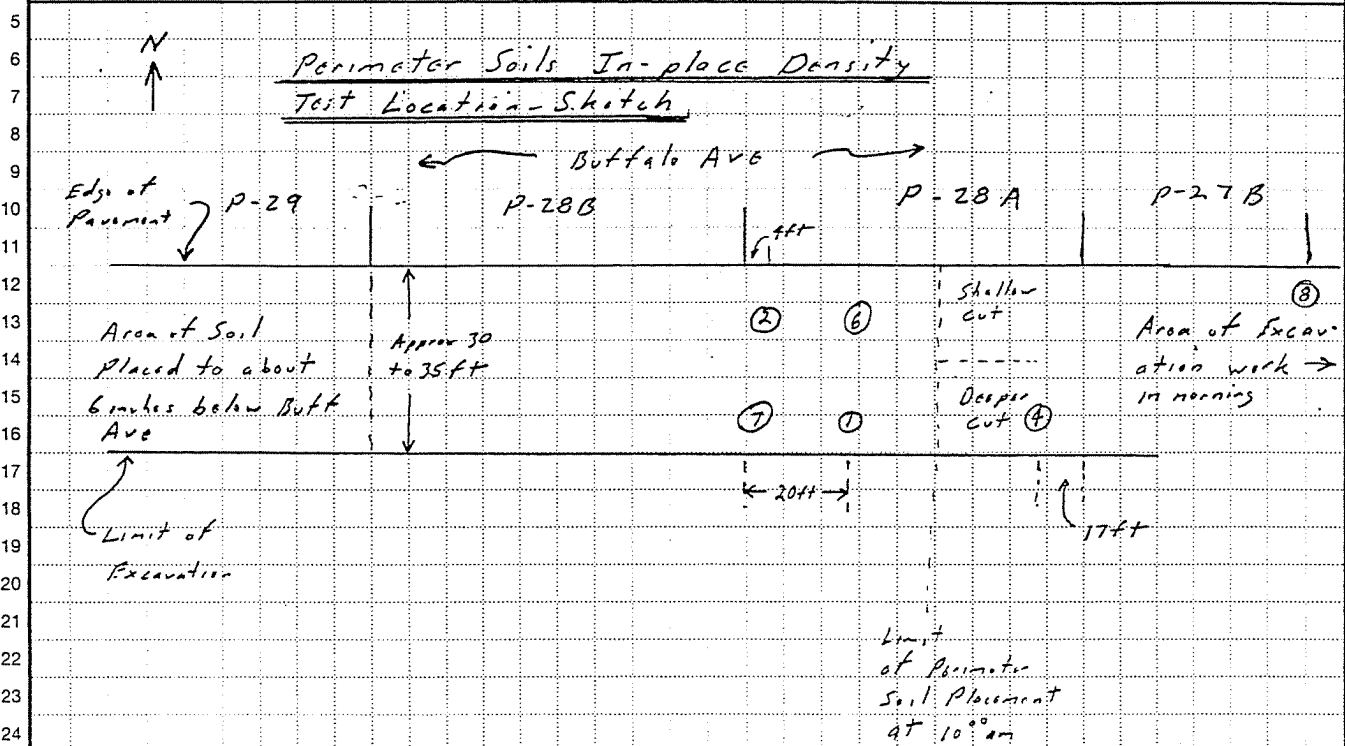 5
6
7
8
9
10
11
12
13
14
15
16
17
18
19
20
21
22
23
24
N
Perimeter Soils In-place Density
Test Location - Sketch
Buffalo Ave
Edge of
Pavement
P-29
P-28B
P-28A
P-27B
4ft
Area of Soil
Placed to about
6 inches below Buff
Ave
Approx 30
to 35 ft
2
6
7
1
Shallow
cut
Deeper
cut
4
8
Area of Excav-
ation work
in morning
20ft
17ft
Limit of
Excavation
Limit
of Perimeter
Soil Placement
at 10°° am